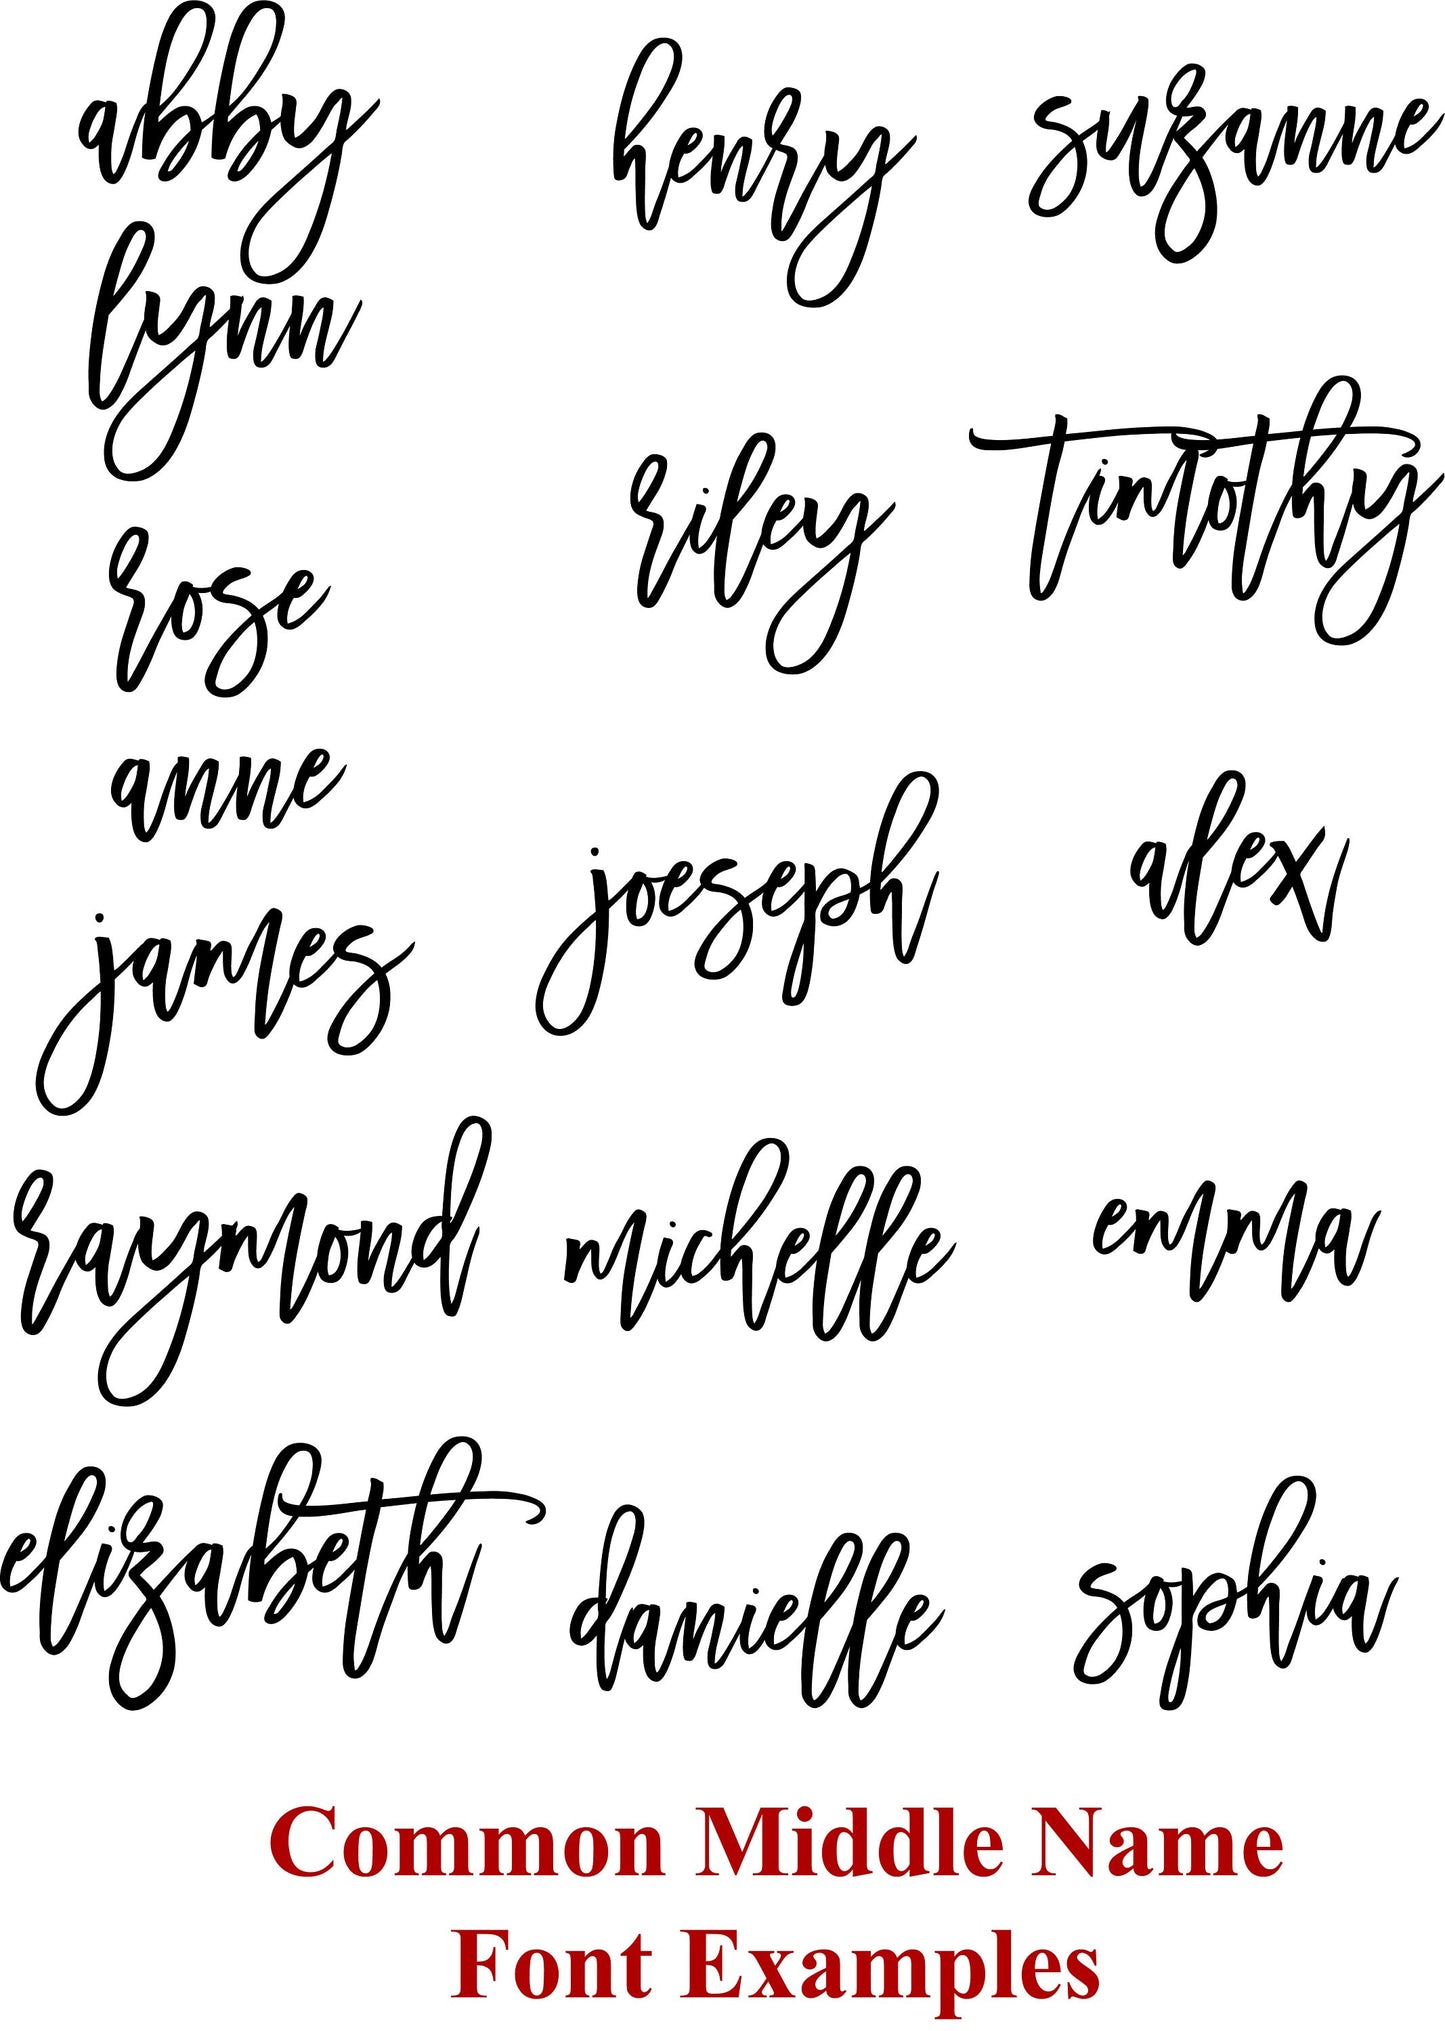 abby
henry
suzanne
lynn
riley
timothy
rose
anne
joeseph
alex
james
raymond
michelle
emma
elizabeth
danielle
sophia
Common Middle Name
Font Examples